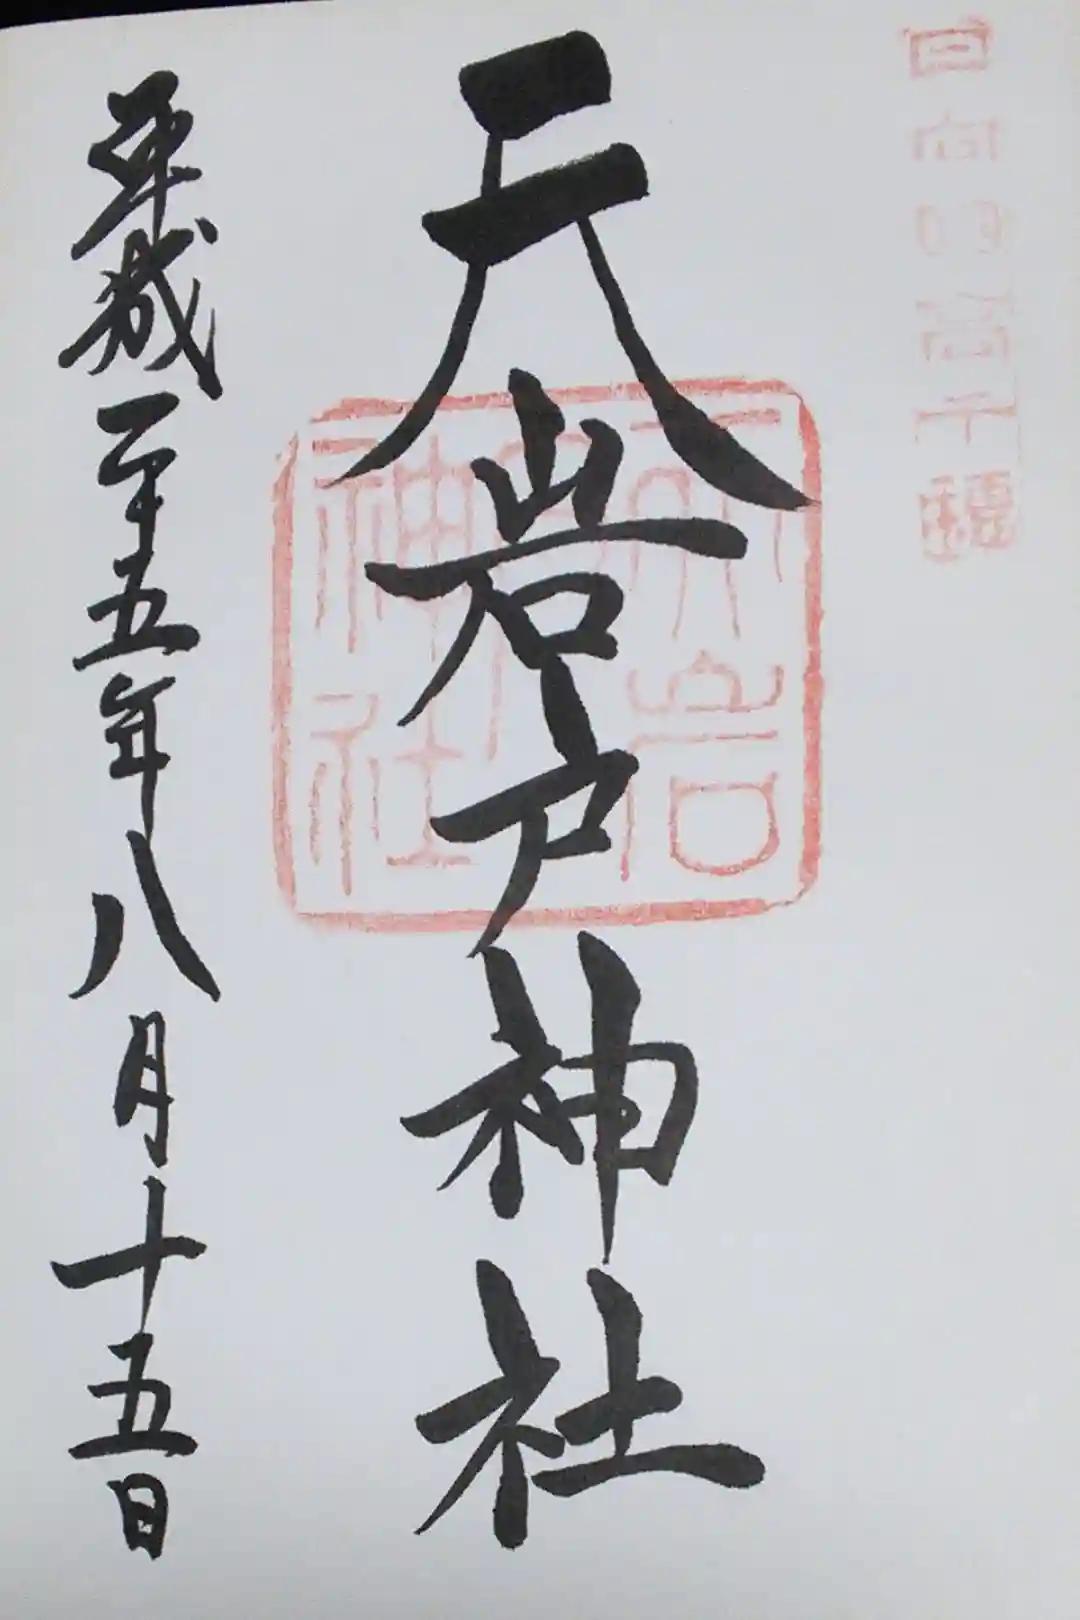 日向高千穂
天岩戸神社
天岩
戸
神社
平成二十五年八月十五日